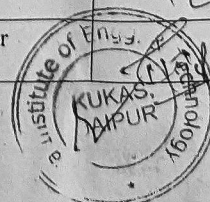 r
Institute of Engg. & Technology
KUKAS,
JAIPUR